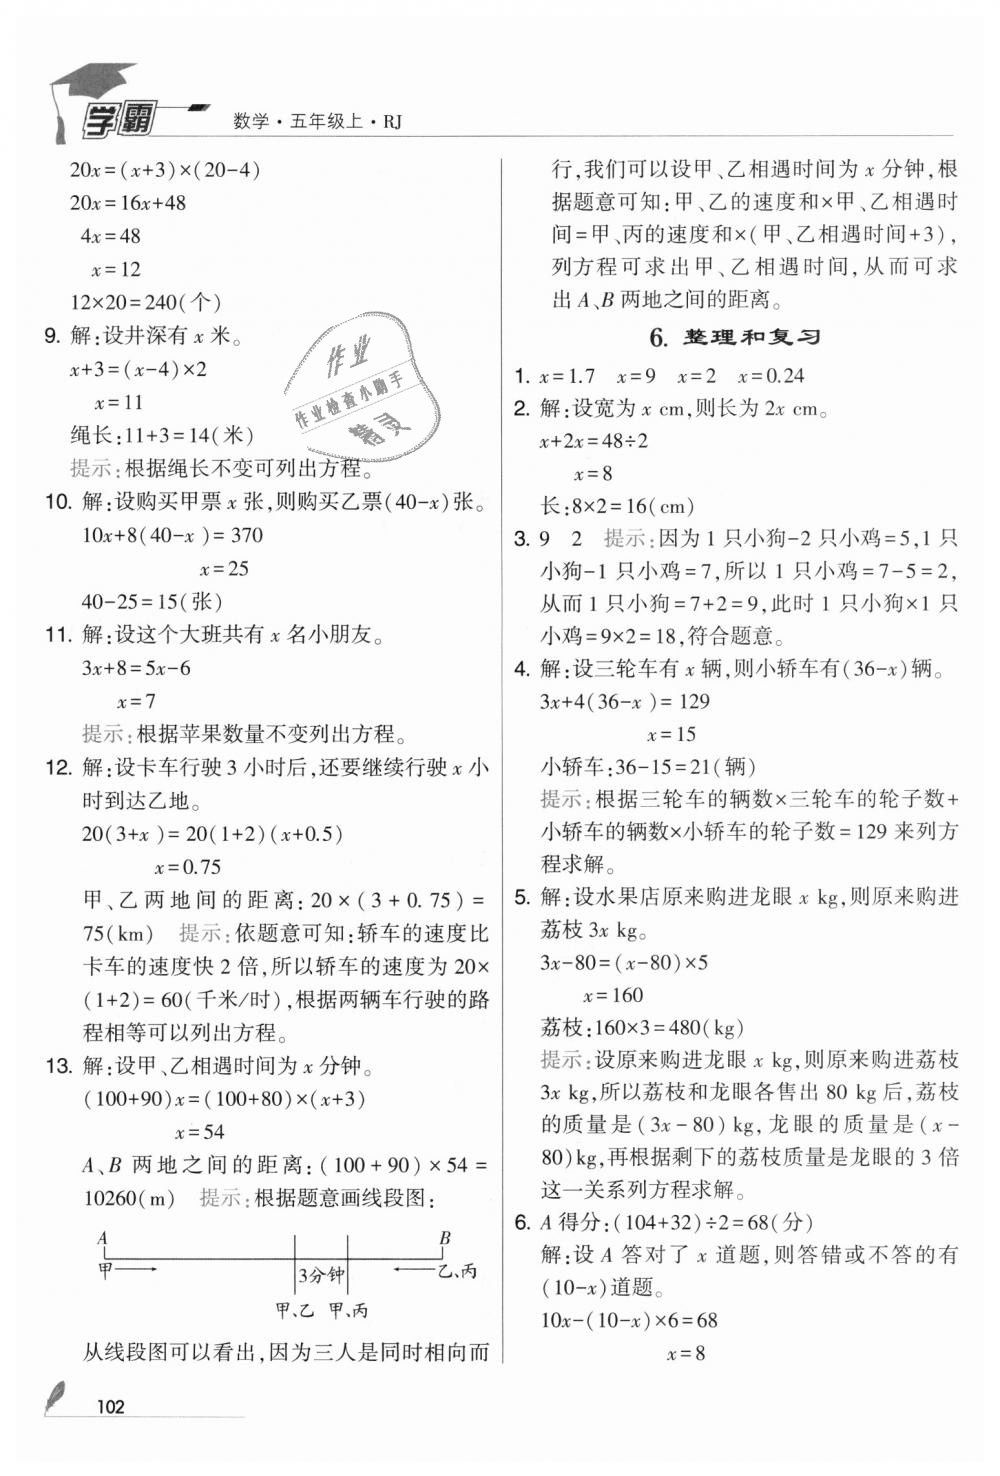 学霸
数学·五年级上·RJ
20x=(x+3)×(20-4)
20x=16x+48
4x=48
x=12
12×20=240(个)
9. 解:设井深有 x 米。
x+3=(x-4)×2
x=11
绳长:11+3=14(米)
提示:根据绳长不变可列出方程。
10. 解:设购买甲票 x 张,则购买乙票(40-x)张。
10x+8(40-x)=370
x=25
40-25=15(张)
11. 解:设这个大班共有 x 名小朋友。
3x+8=5x-6
x=7
提示:根据苹果数量不变列出方程。
12. 解:设卡车行驶 3 小时后,还要继续行驶 x 小
时到达乙地。
20(3+x)=20(1+2)(x+0.5)
x=0.75
甲、乙两地间的距离:20×(3+0.75)=
75(km) 提示:依题意可知:轿车的速度比
卡车的速度快 2 倍,所以轿车的速度为 20×
(1+2)=60(千米/时),根据两辆车行驶的路
程相等可以列出方程。
13. 解:设甲、乙相遇时间为 x 分钟。
(100+90)x=(100+80)×(x+3)
x=54
A、B 两地之间的距离:(100+90)×54=
10260(m) 提示:根据题意画线段图:
A B
甲 3分钟 乙、丙
甲、乙 甲、丙
从线段图可以看出,因为三人是同时相向而
行,我们可以设甲、乙相遇时间为 x 分钟,根
据题意可知:甲、乙的速度和×甲、乙相遇时
间=甲、丙的速度和×(甲、乙相遇时间+3),
列方程可求出甲、乙相遇时间,从而可求
出 A、B 两地之间的距离。
6. 整理和复习
1. x=1.7 x=9 x=2 x=0.24
2. 解:设宽为 x cm,则长为 2x cm。
x+2x=48÷2
x=8
长:8×2=16(cm)
3. 9 2 提示:因为 1 只小狗-2 只小鸡=5,1 只
小狗-1 只小鸡=7,所以 1 只小鸡=7-5=2,
从而 1 只小狗=7+2=9,此时 1 只小狗×1 只
小鸡=9×2=18,符合题意。
4. 解:设三轮车有 x 辆,则小轿车有(36-x)辆。
3x+4(36-x)=129
x=15
小轿车:36-15=21(辆)
提示:根据三轮车的辆数×三轮车的轮子数+
小轿车的辆数×小轿车的轮子数=129 来列方
程求解。
5. 解:设水果店原来购进龙眼 x kg,则原来购进
荔枝 3x kg。
3x-80=(x-80)×5
x=160
荔枝:160×3=480(kg)
提示:设原来购进龙眼 x kg,则原来购进荔枝
3x kg,所以荔枝和龙眼各售出 80 kg 后,荔枝
的质量是(3x-80)kg,龙眼的质量是(x-
80)kg,再根据剩下的荔枝质量是龙眼的 3 倍
这一关系列方程求解。
6. A 得分:(104+32)÷2=68(分)
解:设 A 答对了 x 道题,则答错或不答的有
(10-x)道题。
10x-(10-x)×6=68
x=8
作业
作业检查小助手
精灵
102